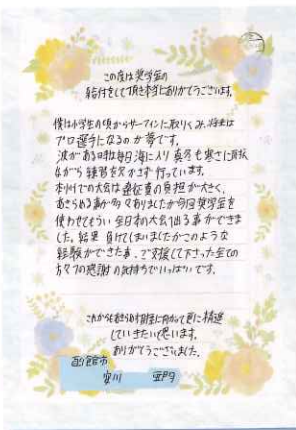 この度は奨学金の
給付をして頂き本当にありがとうございます。
僕は小学生の頃からサーフィンに取りくみ、将来は
プロ選手になるのが夢です。
波がある日は毎日海に入り真冬も寒さに耐え
ながら練習を欠かさず行っています。
本州での大会は遠征費の負担が大きく、
あきらめる事が多々ありましたが今回奨学金を
使わせてもらい全日本の大会に出る事ができま
した。結果負けてしまいましたがこのような
経験ができた事、ご支援して下さった全ての
方々への感謝の気持ちでいっぱいです。
これからもあきらめず目標に向かって更に精進
していきたいと思います。
ありがとうございました。
函館市